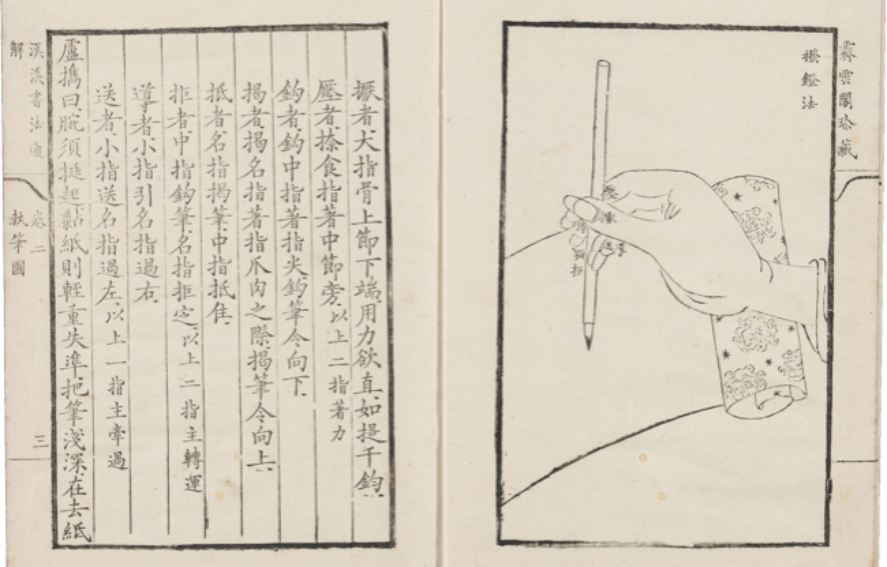 霽雲閣珍藏
撥鐙法
擫者大指骨上節下端用力欲直如提千鈞
壓者捺食指著中節旁以上二指著力
鈎者鈎中指著指尖鈎筆令向下
揭者揭名指著指爪肉之際揭筆令向上
抵者名指揭筆中指抵住
拒者中指鈎筆名指拒定以上二指主轉運
導者小指引名指過右
送者小指送名指過左以上一指主牽過
盧攜曰腕須挺起黏紙則輕重失準把筆淺深在去紙
漢溪書法通
解
卷二
執筆圖
三